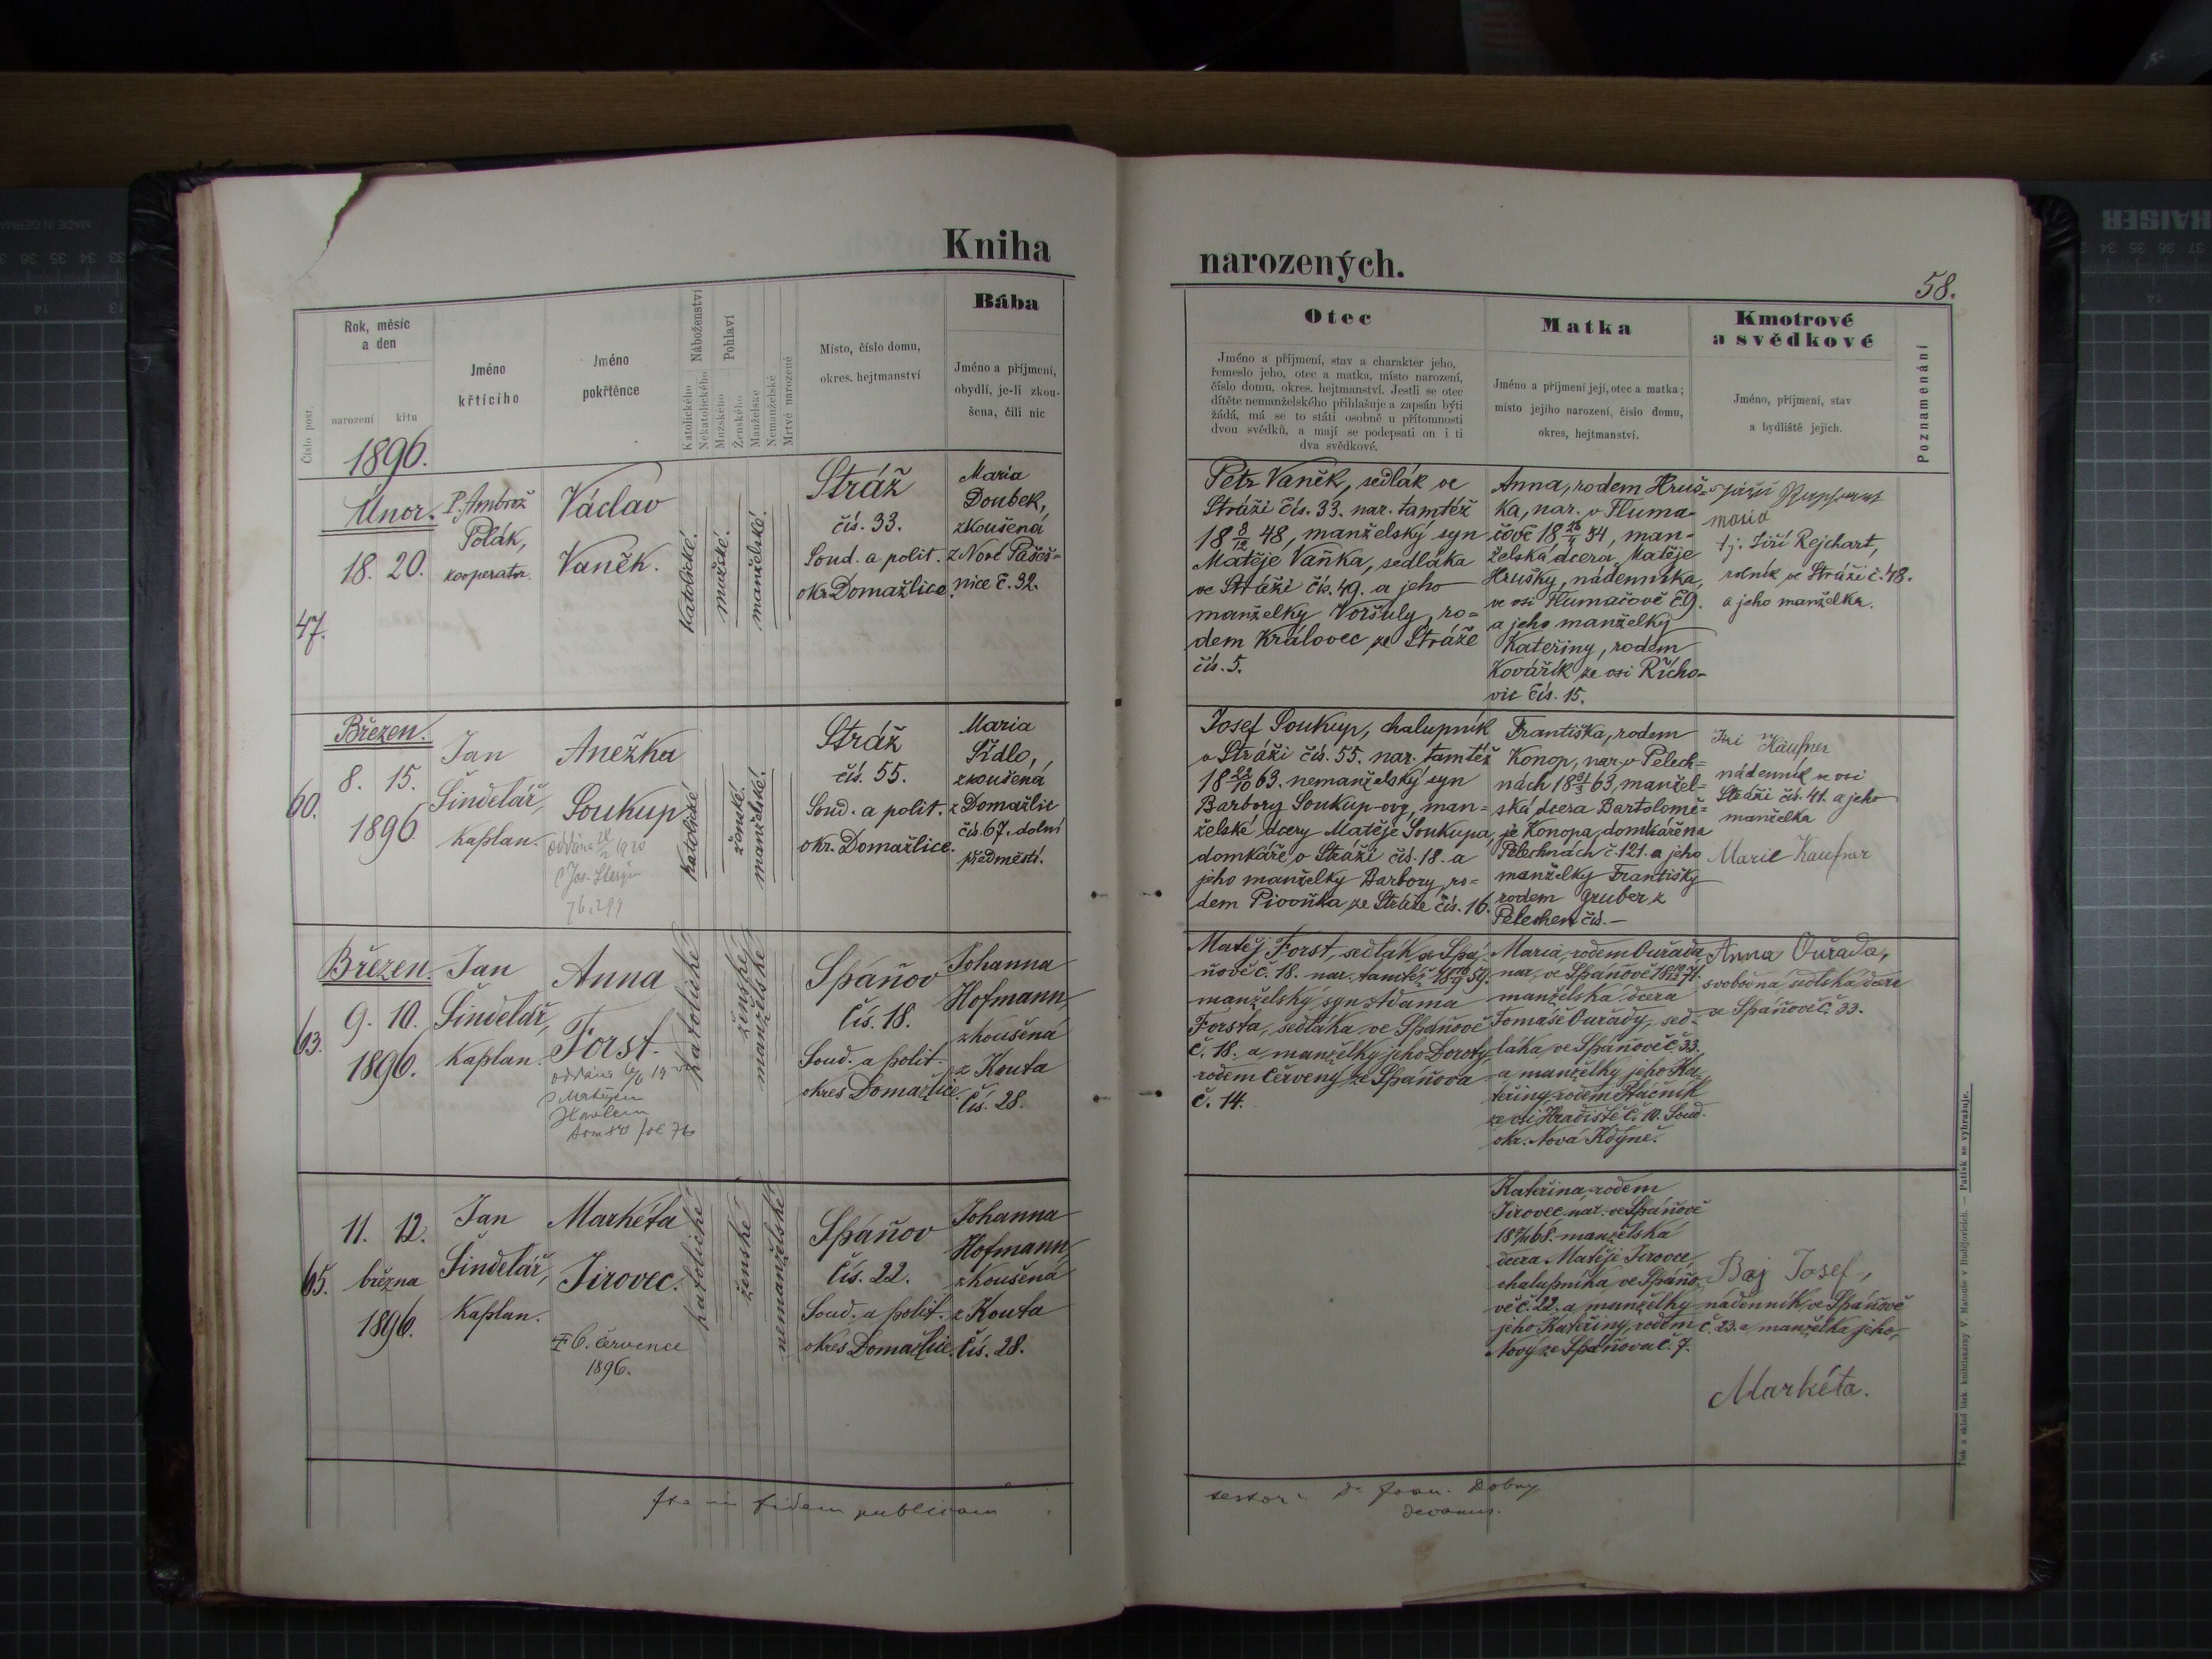 Kniha
narozených.
58.
Číslo post.
Rok, měsíc
a den
narození
křtu
1896.
Jméno
křtícího
Jméno
pokřtěnce
Náboženství
Katolického
Nekatolického
Pohlaví
Mužského
Ženského
Manželské
Nemanželské
Mrtvě narozené
Místo, číslo domu,
okres. hejtmanství
Bába
Jméno a příjmení,
obydlí, je-li zkou-
šena, čili nic
Otec
Jméno a příjmení, stav a charakter jeho,
řemeslo jeho, otec a matka, místo narození,
číslo domu, okres. hejtmanství. Jestli se otec
dítěte nemanželského přihlašuje a zapsán býti
žádá, má se to státi osobně u přítomnosti
dvou svědků, a mají se podepsati on i ti
dva svědkové.
Matka
Jméno a příjmení její, otec a matka;
místo jejího narození, číslo domu,
okres, hejtmanství.
Kmotrové
a svědkové
Jméno, příjmení, stav
a bydliště jejich.
Poznamenání
47.
Unor.
18. 20.
P. Ambrož
Polák,
kooperator.
Václav
Vaněk.
katolické.
mužské.
manželské.
Stráž
čís. 33.
Soud. a polit.
okr. Domažlice.
Maria
Doubek,
zkoušená
z Nové Pašeš=
nice č. 32.
Petr Vaněk, sedlák ve
Stráži čís. 33. nar. tamtéž
18 8/12 48, manželský syn
Matěje Vaňka, sedláka
ve Stráži čís. 49. a jeho
manželky Voršuly, ro=
dem Královec ze Stráže
čís. 5.
Anna, rodem Hruš=
ka, nar. v Tluma=
čově 18 54, man=
želská dcera Matěje
Hrušky, nádenníka,
ve vsi Tlumačově č. 9.
a jeho manželky
Kateřiny, rodem
Kovářík ze vsi Řícho-
vic čís. 15.
maria
tj. Jiří Rejchart,
rolník ve Stráži č. 48.
a jeho manželka.
60.
Březen.
8. 15.
1896.
Jan
Šindelář,
Kaplan.
Anežka
Soukup
oddána 1920
s Jos.
76. 299
katolické
ženské.
manželské.
Stráž
čís. 55.
Soud. a polit.
okr. Domažlice.
Maria
Šídlo,
zkoušená
z Domažlic
čís 67. dolní
předměstí.
Josef Soukup, chalupník
v Stráži čís. 55. nar. tamtéž
18 22/10 63. nemanželský syn
Barbory Soukup-ovy, man=
želské dcery Matěje Soukupa,
domkáře v Stráži čís. 18. a
jeho manželky Barbory, ro=
dem Pivoňka ze Stráže čís. 16.
Františka, rodem
Konop, nar. v Pelech=
nách 18 31/3 63, manžel=
ská dcera Bartolomě=
je Konopa, domkáře na
Pelechnách č. 121. a jeho
manželky Františky
rodem Gruber z
Pelechen čís. —
Jiri Käufner
nádenník ve vsi
Stráži čís. 41. a jeho
manželka
Marie Kaufner
63.
Březen.
9. 10.
1896.
Jan
Šindelář,
Kaplan.
Anna
Forst.
oddána 6/6 19
s Matějem
fol 76
katolické
ženské
manželské
Spáňov
Čís. 18.
Soud. a polit.
okres Domažlice.
Johanna
Hofmann,
zkoušená
z Kouta
Čís. 28.
Matěj Forst, sedlák ve Spá-
ňově č. 18. nar. tamtéž 18 59.
manželský syn Adama
Forsta, sedláka ve Spáňově
č. 18. a manželky jeho Doroty
rodem Červený ze Spáňova
č. 14.
Maria, rodem Ouřada,
nar. ve Spáňově 18 71.
manželská dcera
Tomáše Ouřady, sed-
láka ve Spáňově č. 33.
a manželky jeho Ka-
teřiny, rodem Ptáčník
ze vsi Hradiště č. 10. Soud.
okr. Nová Kdyně.
Anna Ouřada,
svobodná sedlská dcera
ve Spáňově č. 33.
65.
11. 12.
března
1896.
Jan
Šindelář,
Kaplan.
Markéta
Jirovec.
† 6. července
1896.
katolické
ženské
nemanželské
Spáňov
čís. 22.
Soud. a polit.
okres Domažlice.
Johanna
Hofmann,
zkoušená
z Kouta
Čís. 28.
Kateřina, rodem
Jirovec, nar. ve Spáňově
18 68. manželská
dcera Matěje Jirovce,
chalupníka ve Spáňo-
vě č. 22. a manželky
jeho Kateřiny, rodem
Nový ze Spáňova č. 7.
Baj Josef,
nádenník ve Spáňově
č. 23. a manželka jeho,
Markéta.
Ita in fidem publicam
testor: Joan. Dobry
decanus.
Tisk a sklad tisk. knihtiskárny V. Matouše v Budějovicích. — Patisk se vyhražuje.